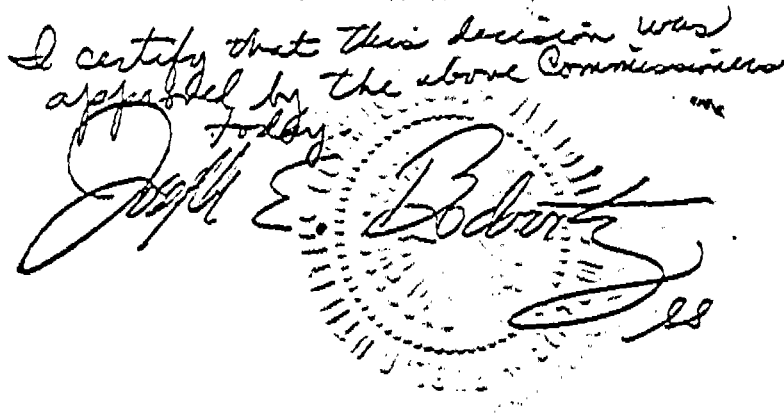 I certify that this decision was
approved by the above Commissioners
today.
Joseph E. Bodovitz
ss